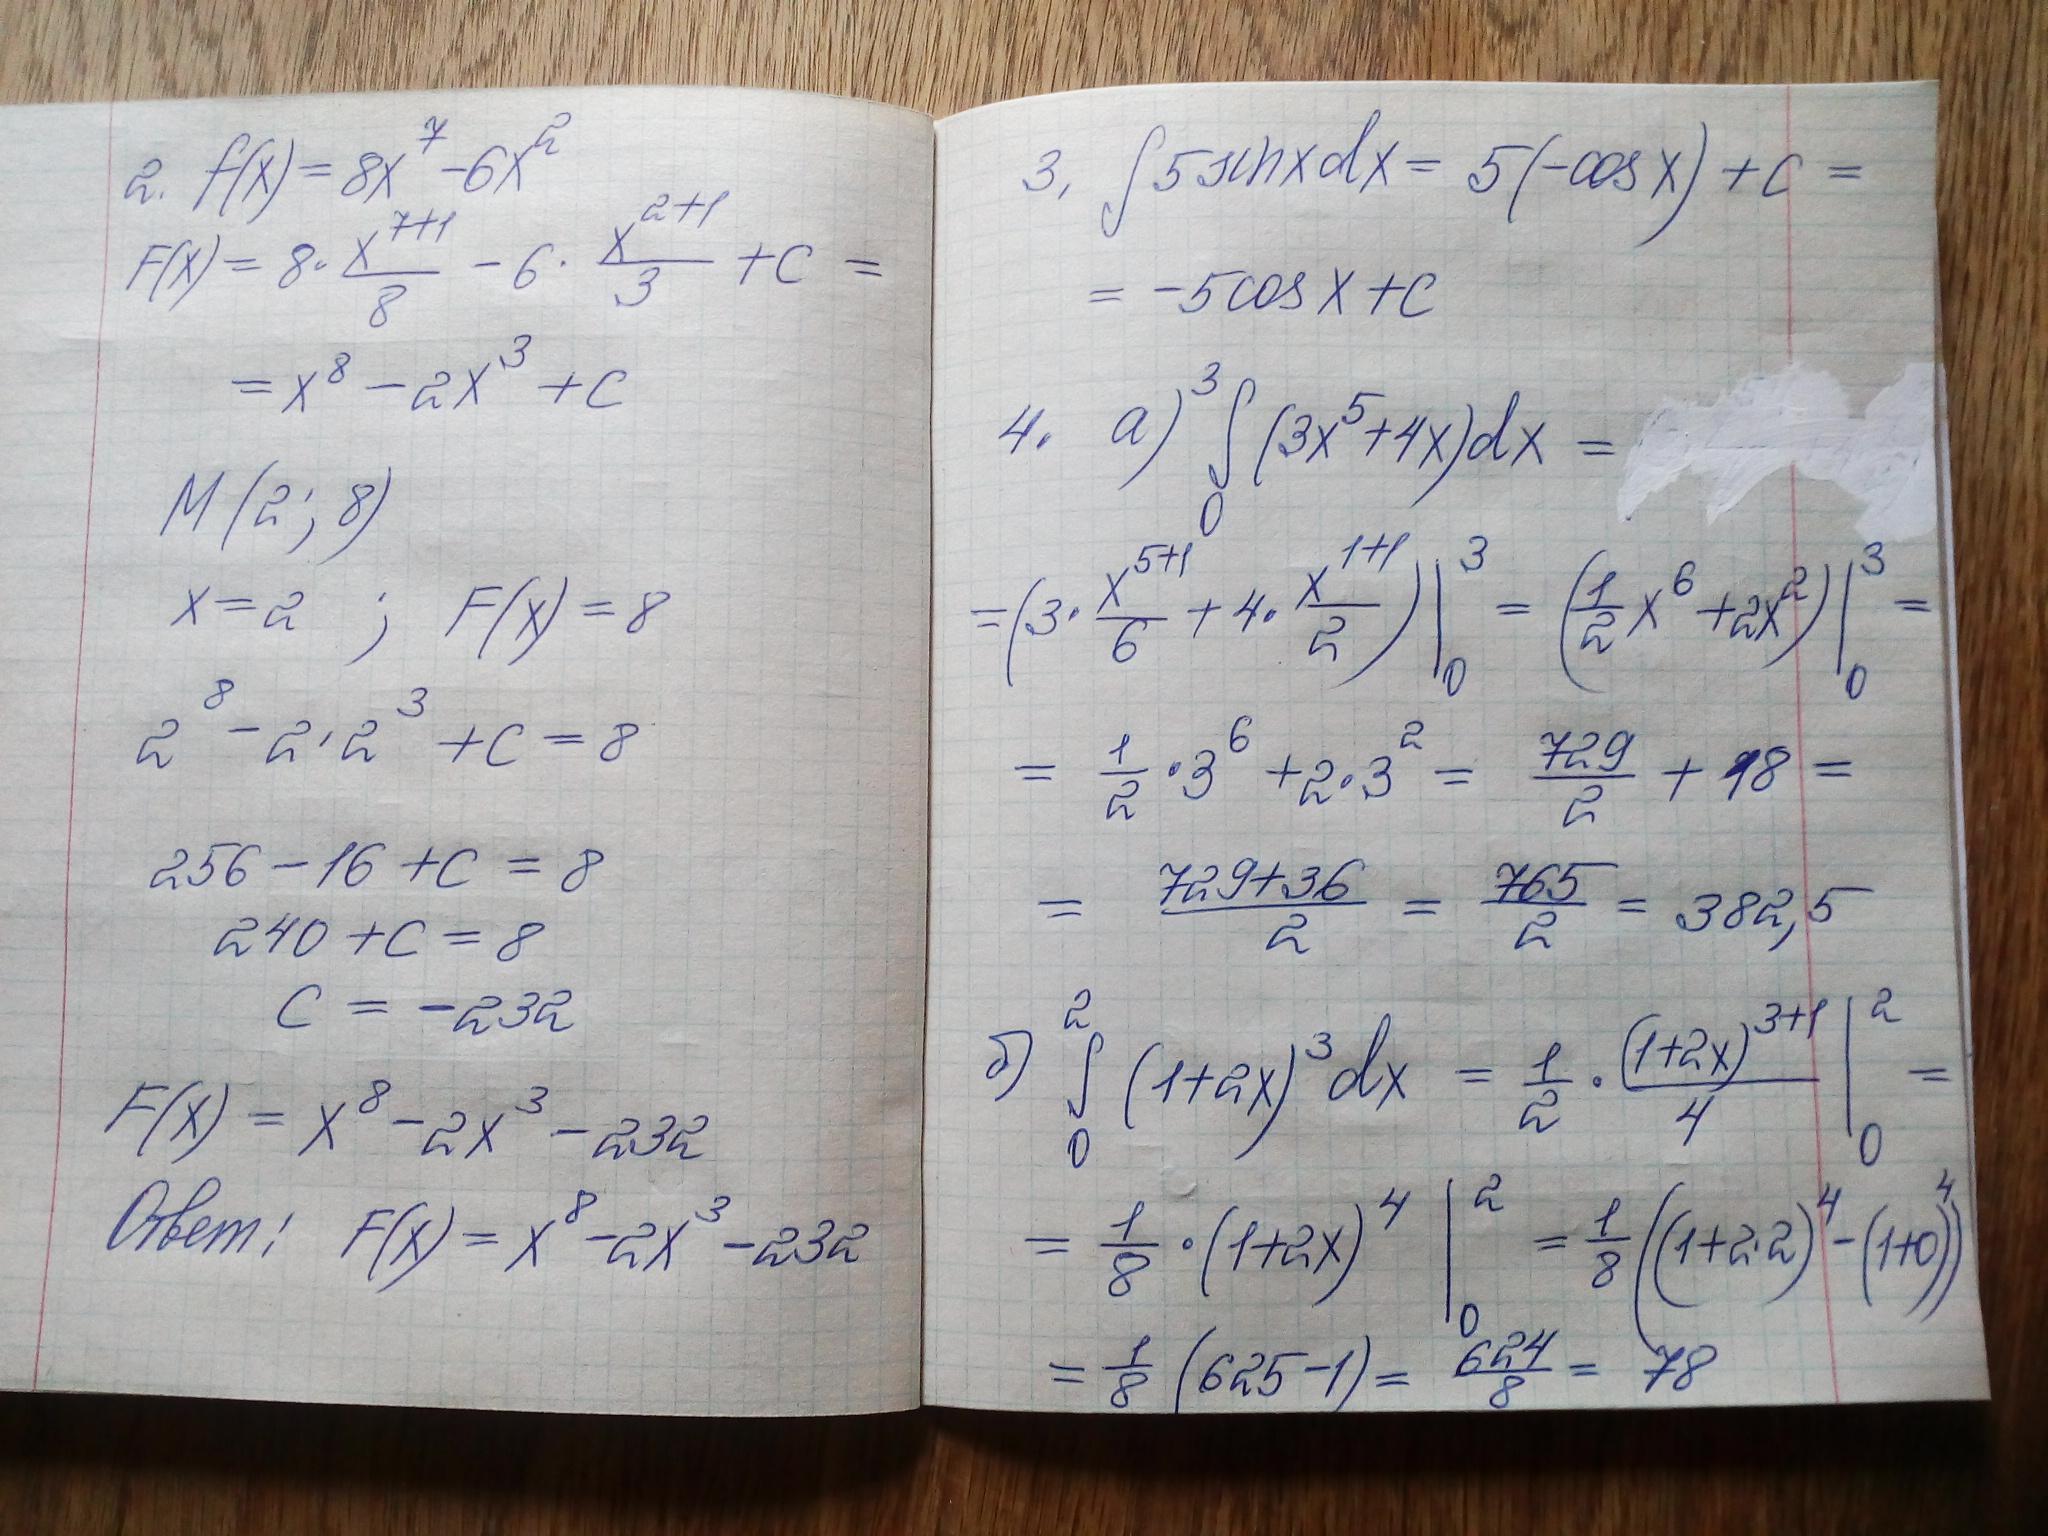 2. f(x) = 8x⁷ - 6x²
F(x) = 8 · x⁷⁺¹/8 - 6 · x²⁺¹/3 + C =
= x⁸ - 2x³ + C
M (2; 8)
x = 2 ; F(x) = 8
2⁸ - 2 · 2³ + C = 8
256 - 16 + C = 8
240 + C = 8
C = -232
F(x) = x⁸ - 2x³ - 232
Ответ: F(x) = x⁸ - 2x³ - 232
3. ∫ 5 sin x dx = 5(-cos x) + C =
= -5 cos x + C
4. а) ³∫₀ (3x⁵ + 4x) dx =
= (3 · x⁵⁺¹/6 + 4 · x¹⁺¹/2) |³₀ = (1/2 x⁶ + 2x²) |³₀ =
= 1/2 · 3⁶ + 2 · 3² = 729/2 + 18 =
= (729+36)/2 = 765/2 = 382,5
б) ²∫₀ (1+2x)³ dx = 1/2 · (1+2x)³⁺¹/4 |²₀ =
= 1/8 · (1+2x)⁴ |²₀ = 1/8 ((1+2·2)⁴ - (1+0)⁴)
= 1/8 (625-1) = 624/8 = 78